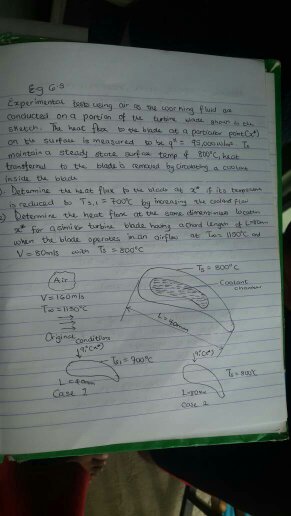 Eg 6.5
Experimental tests using air as the working fluid are
conducted on a portion of the turbine blade shown in the
sketch. The heat flux to the blade at a particular point (x*)
on the surface is measured to be q" = 95,000 W/m². To
maintain a steady state surface temp of 800°C, heat
transferred to the blade is removed by circulating a coolant
inside the blade
Determine the heat flux to the blade at x* if its temperature
is reduced to Ts,1 = 700°C by increasing the coolant flow
Determine the heat flux at the same dimensionless location
x* for a similar turbine blade having a chord length of L=80mm
when the blade operates in an airflow at T∞ = 1150°C and
V = 80m/s with Ts = 800°C
Air
Ts = 800°C
V = 160m/s
Coolant
chamber
T∞ = 1150°C
L = 40mm
Original conditions
q"(x*)
q"(x*)
Ts,1 = 700°C
Ts = 800°C
L = 40mm
L=80mm
Case 1
Case 2